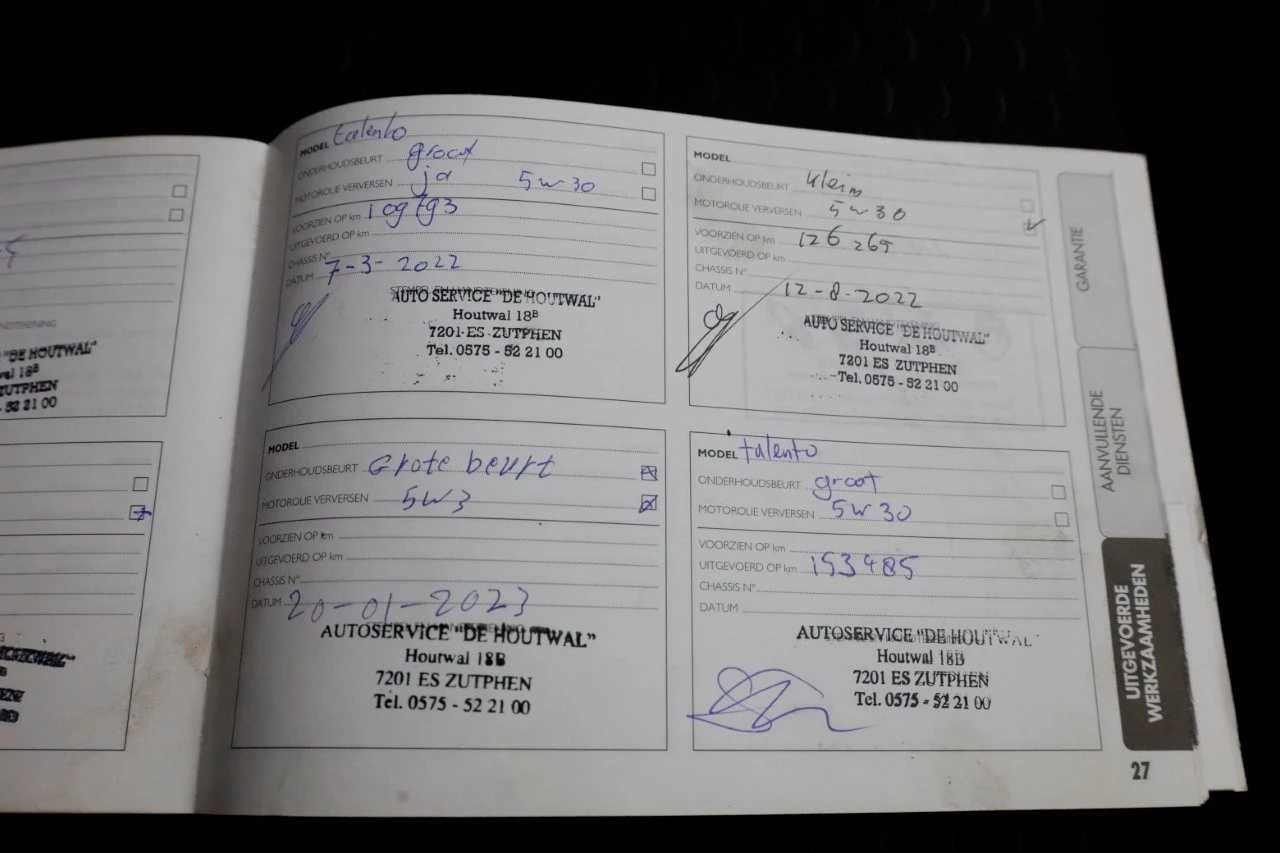 NDTEKENING
"DE HOUTWAL"
18ᴮ
ZUTPHEN
52 21 00
MODEL talento
ONDERHOUDSBEURT groot
MOTOROLIE VERVERSEN ja 5w30
VOORZIEN OP km
UITGEVOERD OP km
CHASSIS N°
DATUM 7-3-2022
AUTO SERVICE "DE HOUTWAL"
Houtwal 18ᴮ
7201 ES ZUTPHEN
Tel. 0575 - 52 21 00
MODEL
ONDERHOUDSBEURT klein
MOTOROLIE VERVERSEN 5w30
VOORZIEN OP km 126 265
UITGEVOERD OP km
CHASSIS N°
DATUM 12-8-2022
AUTO SERVICE "DE HOUTWAL"
Houtwal 18ᴮ
7201 ES ZUTPHEN
Tel. 0575 - 52 21 00
MODEL
ONDERHOUDSBEURT Grote beurt
MOTOROLIE VERVERSEN 5W3
VOORZIEN OP km
UITGEVOERD OP km
CHASSIS N°
DATUM 20-01-2023
AUTOSERVICE "DE HOUTWAL"
Houtwal 18B
7201 ES ZUTPHEN
Tel. 0575 - 52 21 00
MODEL talento
ONDERHOUDSBEURT groot
MOTOROLIE VERVERSEN 5w30
VOORZIEN OP km
UITGEVOERD OP km 153485
CHASSIS N°
DATUM
AUTOSERVICE "DE HOUTWAL"
Houtwal 18B
7201 ES ZUTPHEN
Tel. 0575 - 52 21 00
GARANTIE
AANVULLENDE
DIENSTEN
UITGEVOERDE
WERKZAAMHEDEN
27